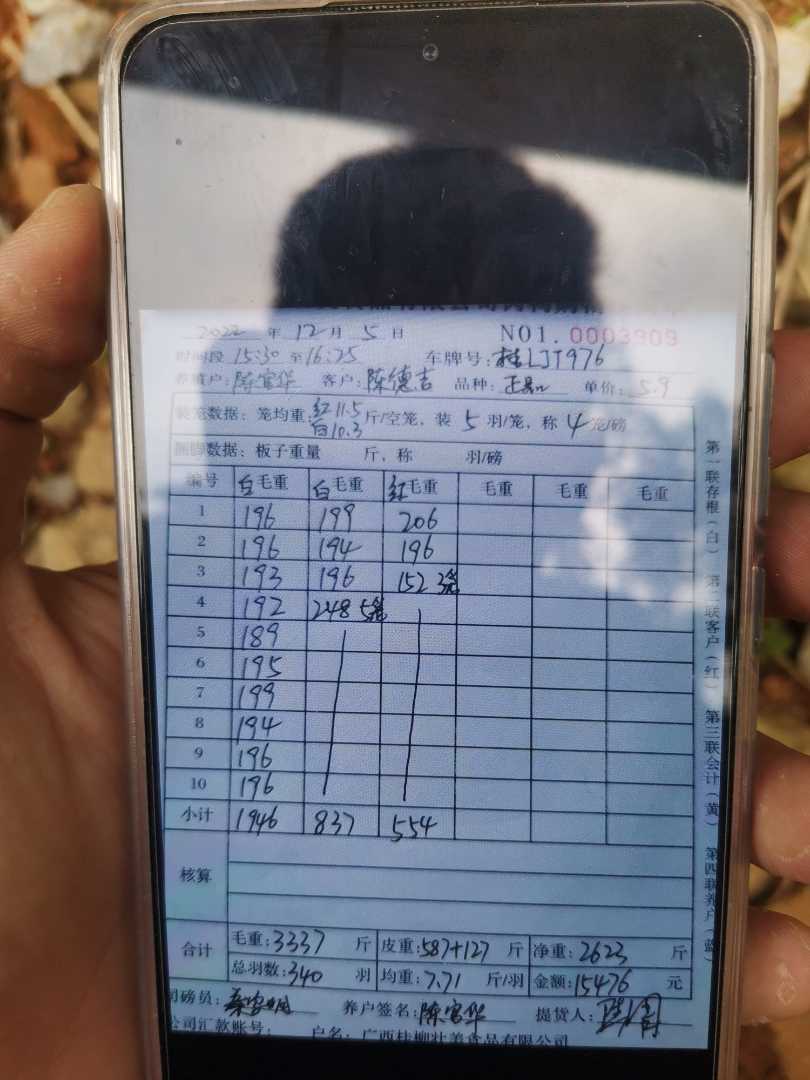 2022 年 12 月 5 日 NO1. 0003909
时间段 15:30 至 16:25 车牌号: 桂LJT976
养殖户: 陈宝华 客户: 陈德吉 品种: 单价: 5.9
装笼数据: 笼均重 红11.5 白10.3 斤/空笼, 装 5 羽/笼, 称 4 笼/磅
捆脚数据: 板子重量 斤, 称 羽/磅
编号 白毛重 白毛重 红毛重 毛重 毛重 毛重
1 196 199 206
2 196 194 196
3 193 196 152 3笼
4 192 248 5笼
5 189
6 195
7 199
8 194
9 196
10 196
小计 1946 837 554
核算
合计 毛重: 3337 斤 皮重: 587+127 斤 净重: 2623 斤
总羽数: 340 羽 均重: 7.71 斤/羽 金额: 15476 元
司磅员: 养户签名: 陈宝华 提货人:
公司汇款账号: 户名: 广西桂柳壮美食品有限公司
第一联存根(白) 第二联客户(红) 第三联会计(黄) 第四联养户(蓝)